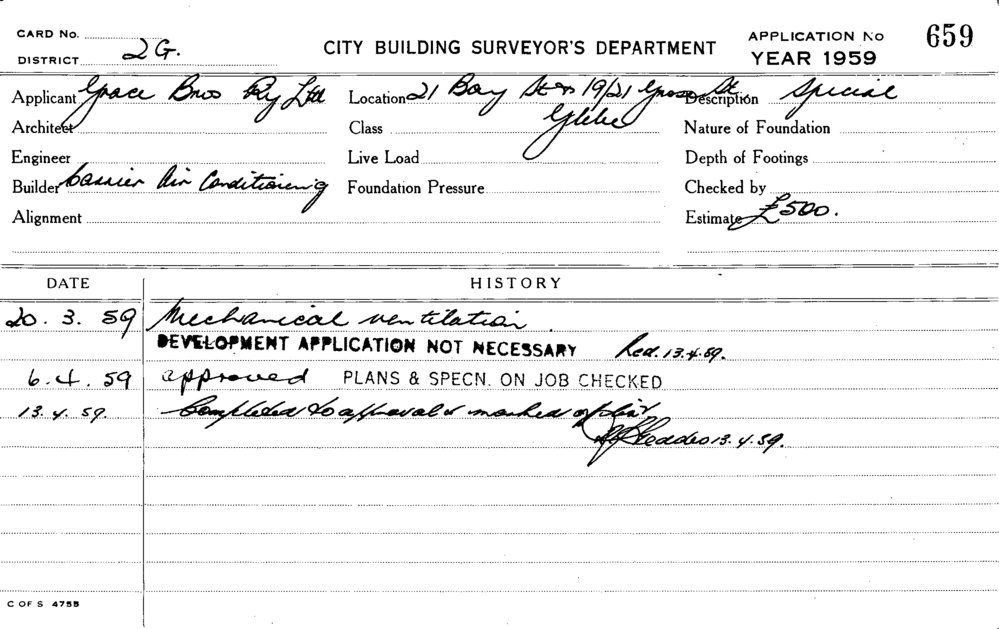 CARD No.
DISTRICT 2G.
CITY BUILDING SURVEYOR'S DEPARTMENT
APPLICATION No 659
YEAR 1959
Applicant Grace Bros Pty Ltd Location 21 Bay St & 19/21 Grose St. Description Special
Architect Class Glebe Nature of Foundation
Engineer Live Load Depth of Footings
Builder Carrier Air Conditioning Foundation Pressure Checked by
Alignment Estimate £500.
DATE HISTORY
20. 3. 59 Mechanical ventilation
DEVELOPMENT APPLICATION NOT NECESSARY 13.4.59.
6. 4. 59 approved PLANS & SPECN. ON JOB CHECKED
13. 4. 59. Completed to approval & marked off list
13. 4. 59.
C OF S 4755